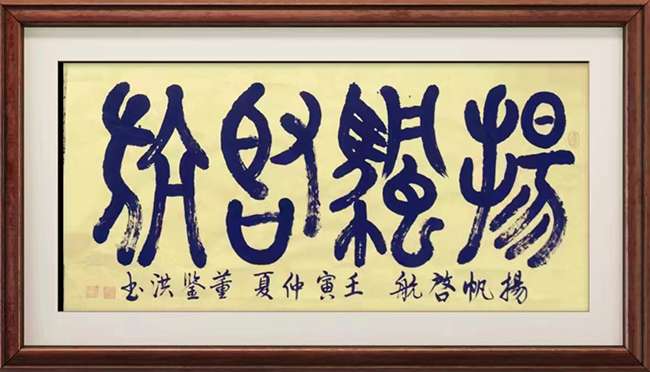 揚帆啓航
揚帆啓航 壬寅仲夏 董鉴洪书